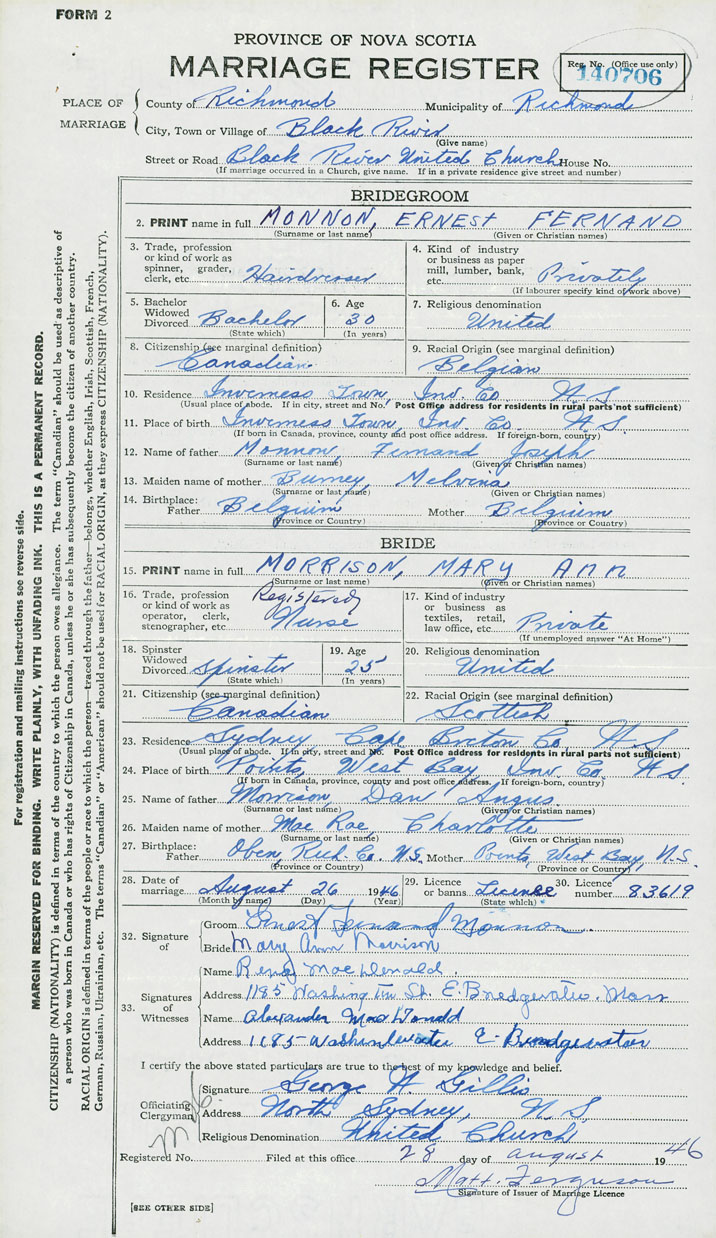 FORM 2
PROVINCE OF NOVA SCOTIA
MARRIAGE REGISTER
Reg. No. (Office use only)
140706
PLACE OF MARRIAGE
County of Richmond Municipality of Richmond
City, Town or Village of Black River
(Give name)
Street or Road Black River United Church House No.
(If marriage occurred in a Church, give name. If in a private residence give street and number)
BRIDEGROOM
2. PRINT name in full MONNON, ERNEST FERNAND
(Surname or last name) (Given or Christian names)
3. Trade, profession or kind of work as spinner, grader, clerk, etc. Hairdresser
4. Kind of industry or business as paper mill, lumber, bank, etc. Privately
(If labourer specify kind of work above)
5. Bachelor Widowed Divorced Bachelor
(State which)
6. Age 30
(In years)
7. Religious denomination United
8. Citizenship (see marginal definition) Canadian
9. Racial Origin (see marginal definition) Belgian
10. Residence Inverness Town, Inv. Co. N.S.
(Usual place of abode. If in city, street and No. Post Office address for residents in rural parts not sufficient)
11. Place of birth Inverness Town, Inv. Co. N.S.
(If born in Canada, province, county and post office address. If foreign-born, country)
12. Name of father Monnon, Fernand Joseph
(Surname or last name) (Given or Christian names)
13. Maiden name of mother Burney, Melvina
(Surname or last name) (Given or Christian names)
14. Birthplace: Father Belguim Mother Belguim
(Province or Country) (Province or Country)
BRIDE
15. PRINT name in full MORRISON, MARY Ann
(Surname or last name) (Given or Christian names)
16. Trade, profession or kind of work as operator, clerk, stenographer, etc. Registered Nurse
17. Kind of industry or business as textiles, retail, law office, etc. Private
(If unemployed answer "At Home")
18. Spinster Widowed Divorced Spinster
(State which)
19. Age 25
(In years)
20. Religious denomination United
21. Citizenship (see marginal definition) Canadian
22. Racial Origin (see marginal definition) Scottish
23. Residence Sydney, Cape Breton Co. N.S.
(Usual place of abode. If in city, street and No. Post Office address for residents in rural parts not sufficient)
24. Place of birth Points, West Bay, Inv. Co. N.S.
(If born in Canada, province, county and post office address. If foreign-born, country)
25. Name of father Morrison, Dan Angus
(Surname or last name) (Given or Christian names)
26. Maiden name of mother Mac Rae, Charlotte
(Surname or last name) (Given or Christian names)
27. Birthplace: Father Oben, Rich. Co. N.S. Mother Points, West Bay, N.S.
(Province or Country) (Province or Country)
28. Date of marriage August 26 1946
(Month by name) (Day) (Year)
29. Licence or banns Licence
(State which)
30. Licence number 83619
32. Signature of
Groom Ernest Fernand Monnon
Bride Mary Ann Morrison
33. Signatures of Witnesses
Name Rena MacDonald.
Address 1185 Washington St. E. Bridgewater. Mass
Name Alexander MacDonald
Address 1185 E. Bridgewater
I certify the above stated particulars are true to the best of my knowledge and belief.
Officiating Clergyman
Signature George H. Gillis
Address North Sydney, N.S.
Religious Denomination United Church
Registered No. Filed at this office 28 day of August 1946
Matt. Ferguson
Signature of Issuer of Marriage Licence
[SEE OTHER SIDE]
For registration and mailing instructions see reverse side.
MARGIN RESERVED FOR BINDING. WRITE PLAINLY, WITH UNFADING INK. THIS IS A PERMANENT RECORD.
CITIZENSHIP (NATIONALITY) is defined in terms of the country to which the person owes allegiance. The term "Canadian" should be used as descriptive of
a person who was born in Canada or who has rights of Citizenship in Canada, unless he or she has subsequently become the citizen of another country.
RACIAL ORIGIN is defined in terms of the people or race to which the person—traced through the father—belongs, whether English, Irish, Scottish, French,
German, Russian, Ukrainian, etc. The terms "Canadian" or "American" should not be used for RACIAL ORIGIN, as they express CITIZENSHIP (NATIONALITY).